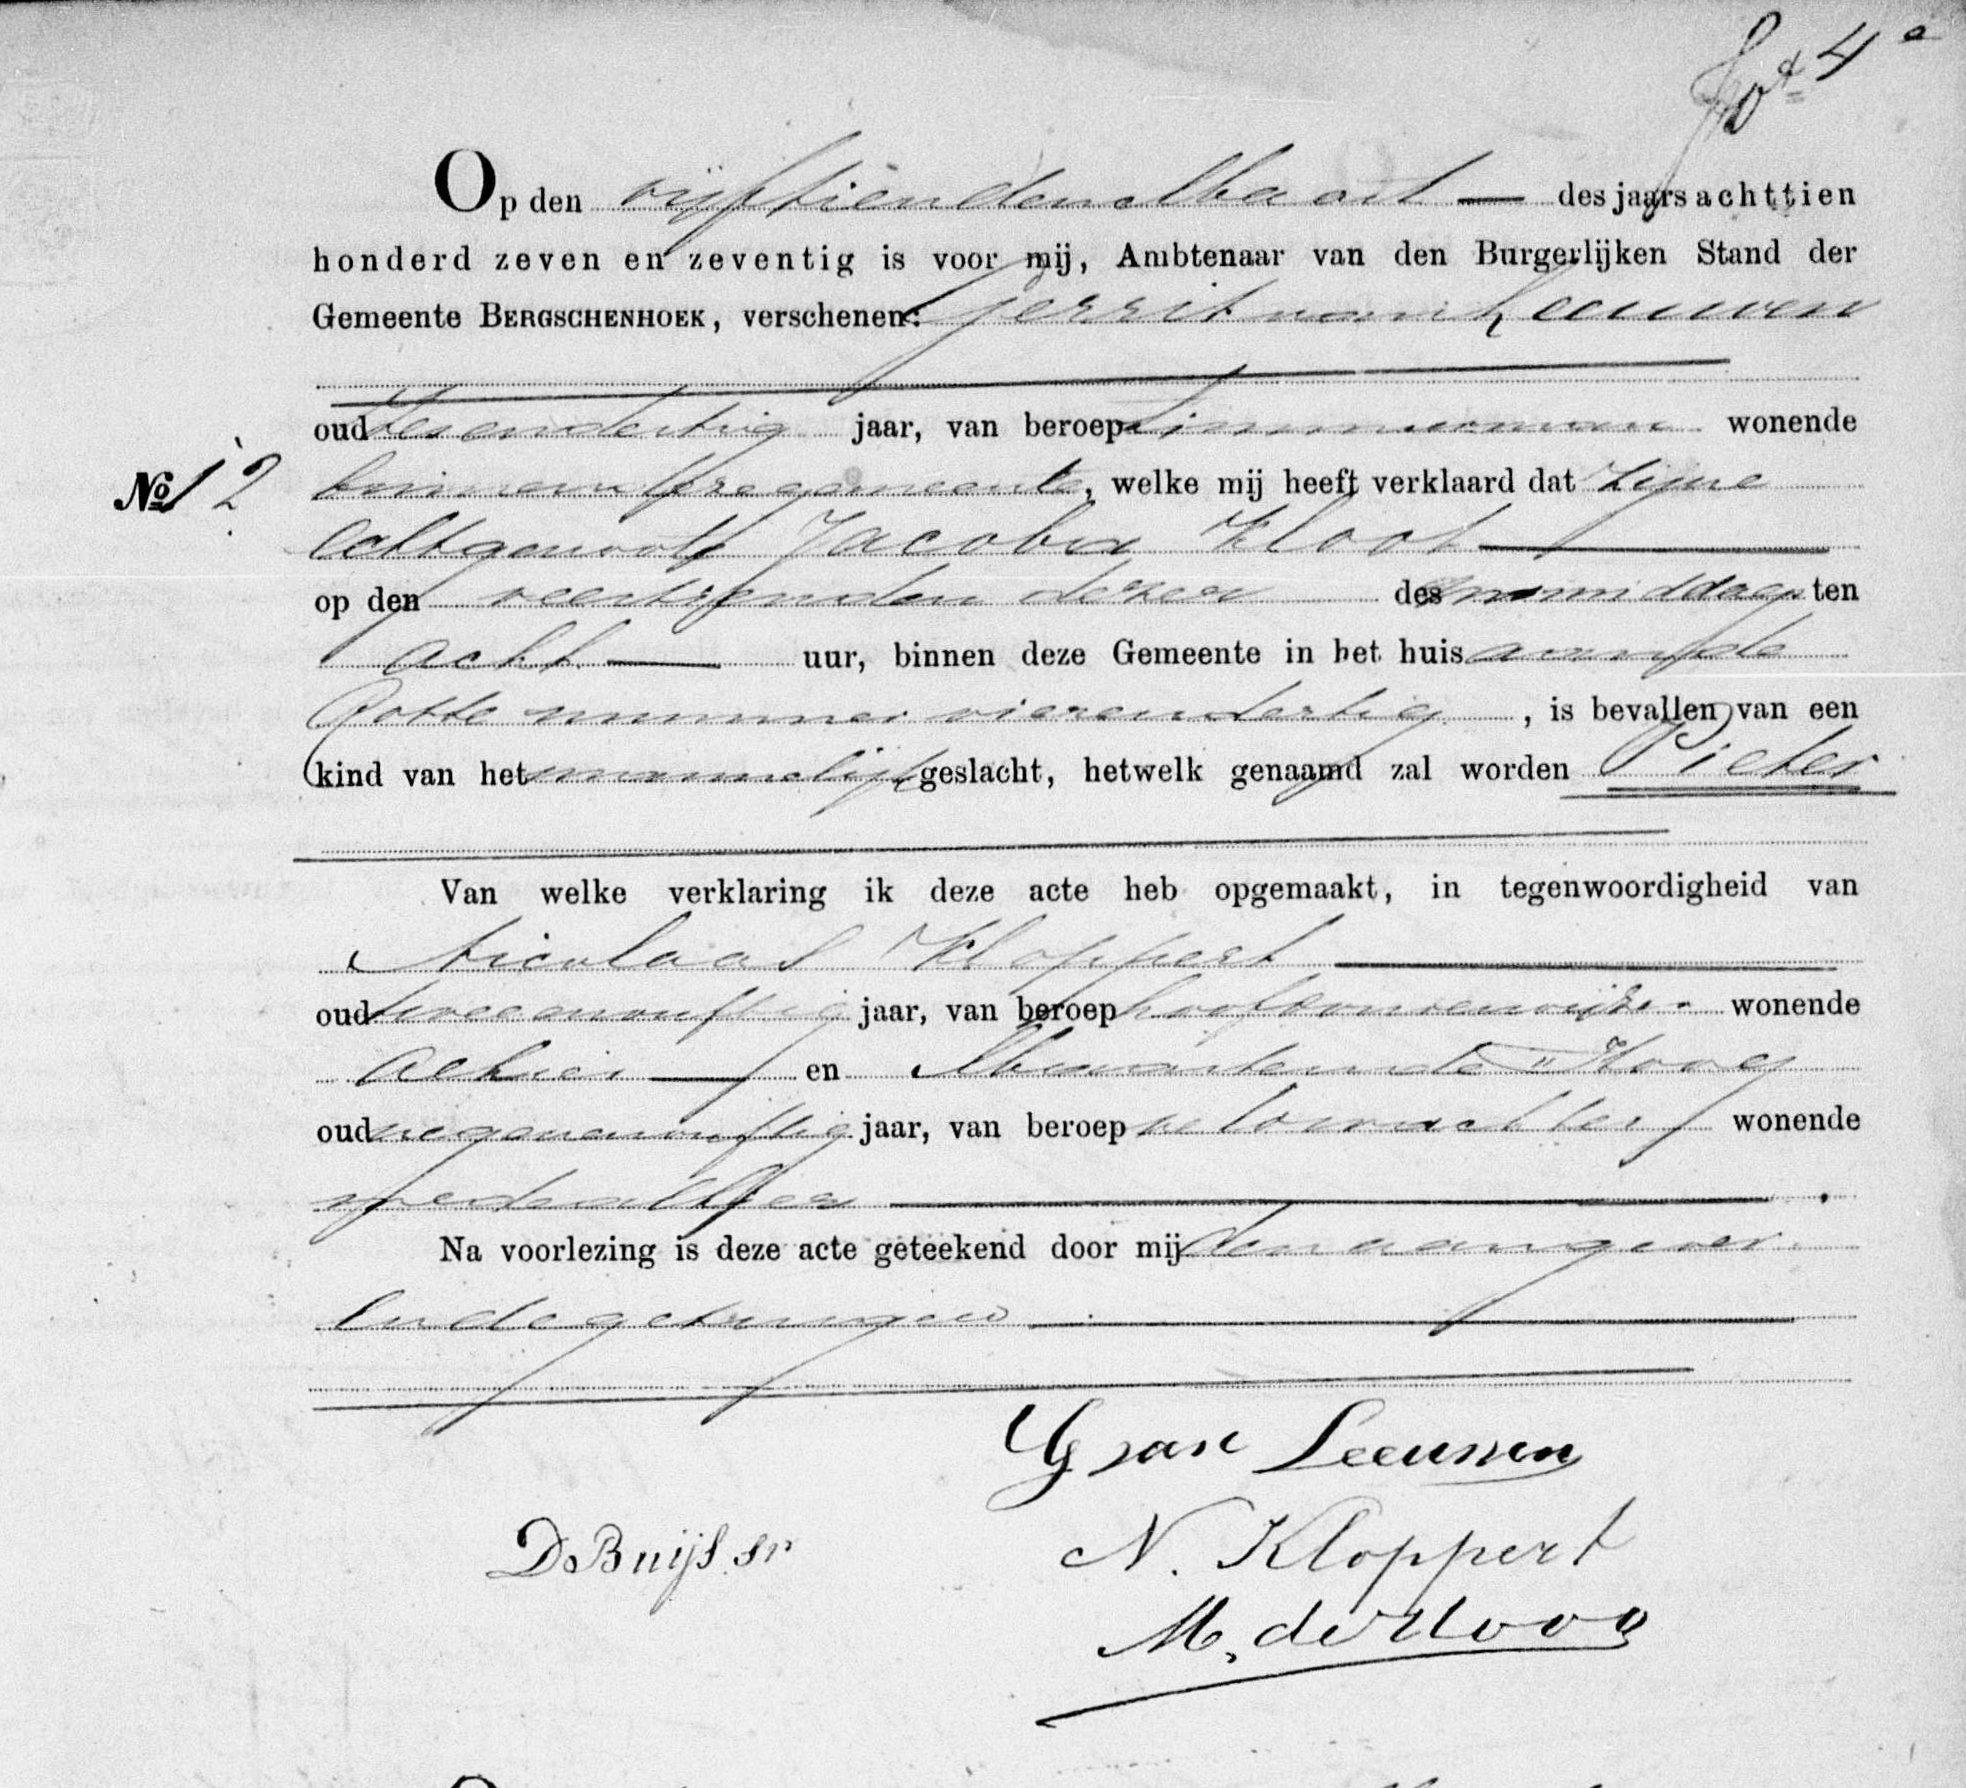 4e
Op den vijftienden Maart — des jaars achttien
honderd zeven en zeventig is voor mij, Ambtenaar van den Burgerlijken Stand der
Gemeente BERGSCHENHOEK, verschenen: Gerrit van Leeuwen
oud zesendertig jaar, van beroep timmerman wonende
No 12
binnen deze gemeente, welke mij heeft verklaard dat zijne
Echtgenoote Jacoba Kloot —
op den veertienden dezer des namiddags ten
acht — uur, binnen deze Gemeente in het huis aan de
Rotte nummer vierendertig, is bevallen van een
kind van het mannelijk geslacht, hetwelk genaamd zal worden Pieter
Van welke verklaring ik deze acte heb opgemaakt, in tegenwoordigheid van
Nicolaas Kloppert —
oud tweeenvijftig jaar, van beroep hoofdonderwijzer wonende
alhier — en Maarten de Hoog
oud negenenvijftig jaar, van beroep veldwachter wonende
mede alhier — .
Na voorlezing is deze acte geteekend door mij den aangever
en de getuigen —
G van Leeuwen
D. Buijs. sr
N. Kloppert
M. de Hoog